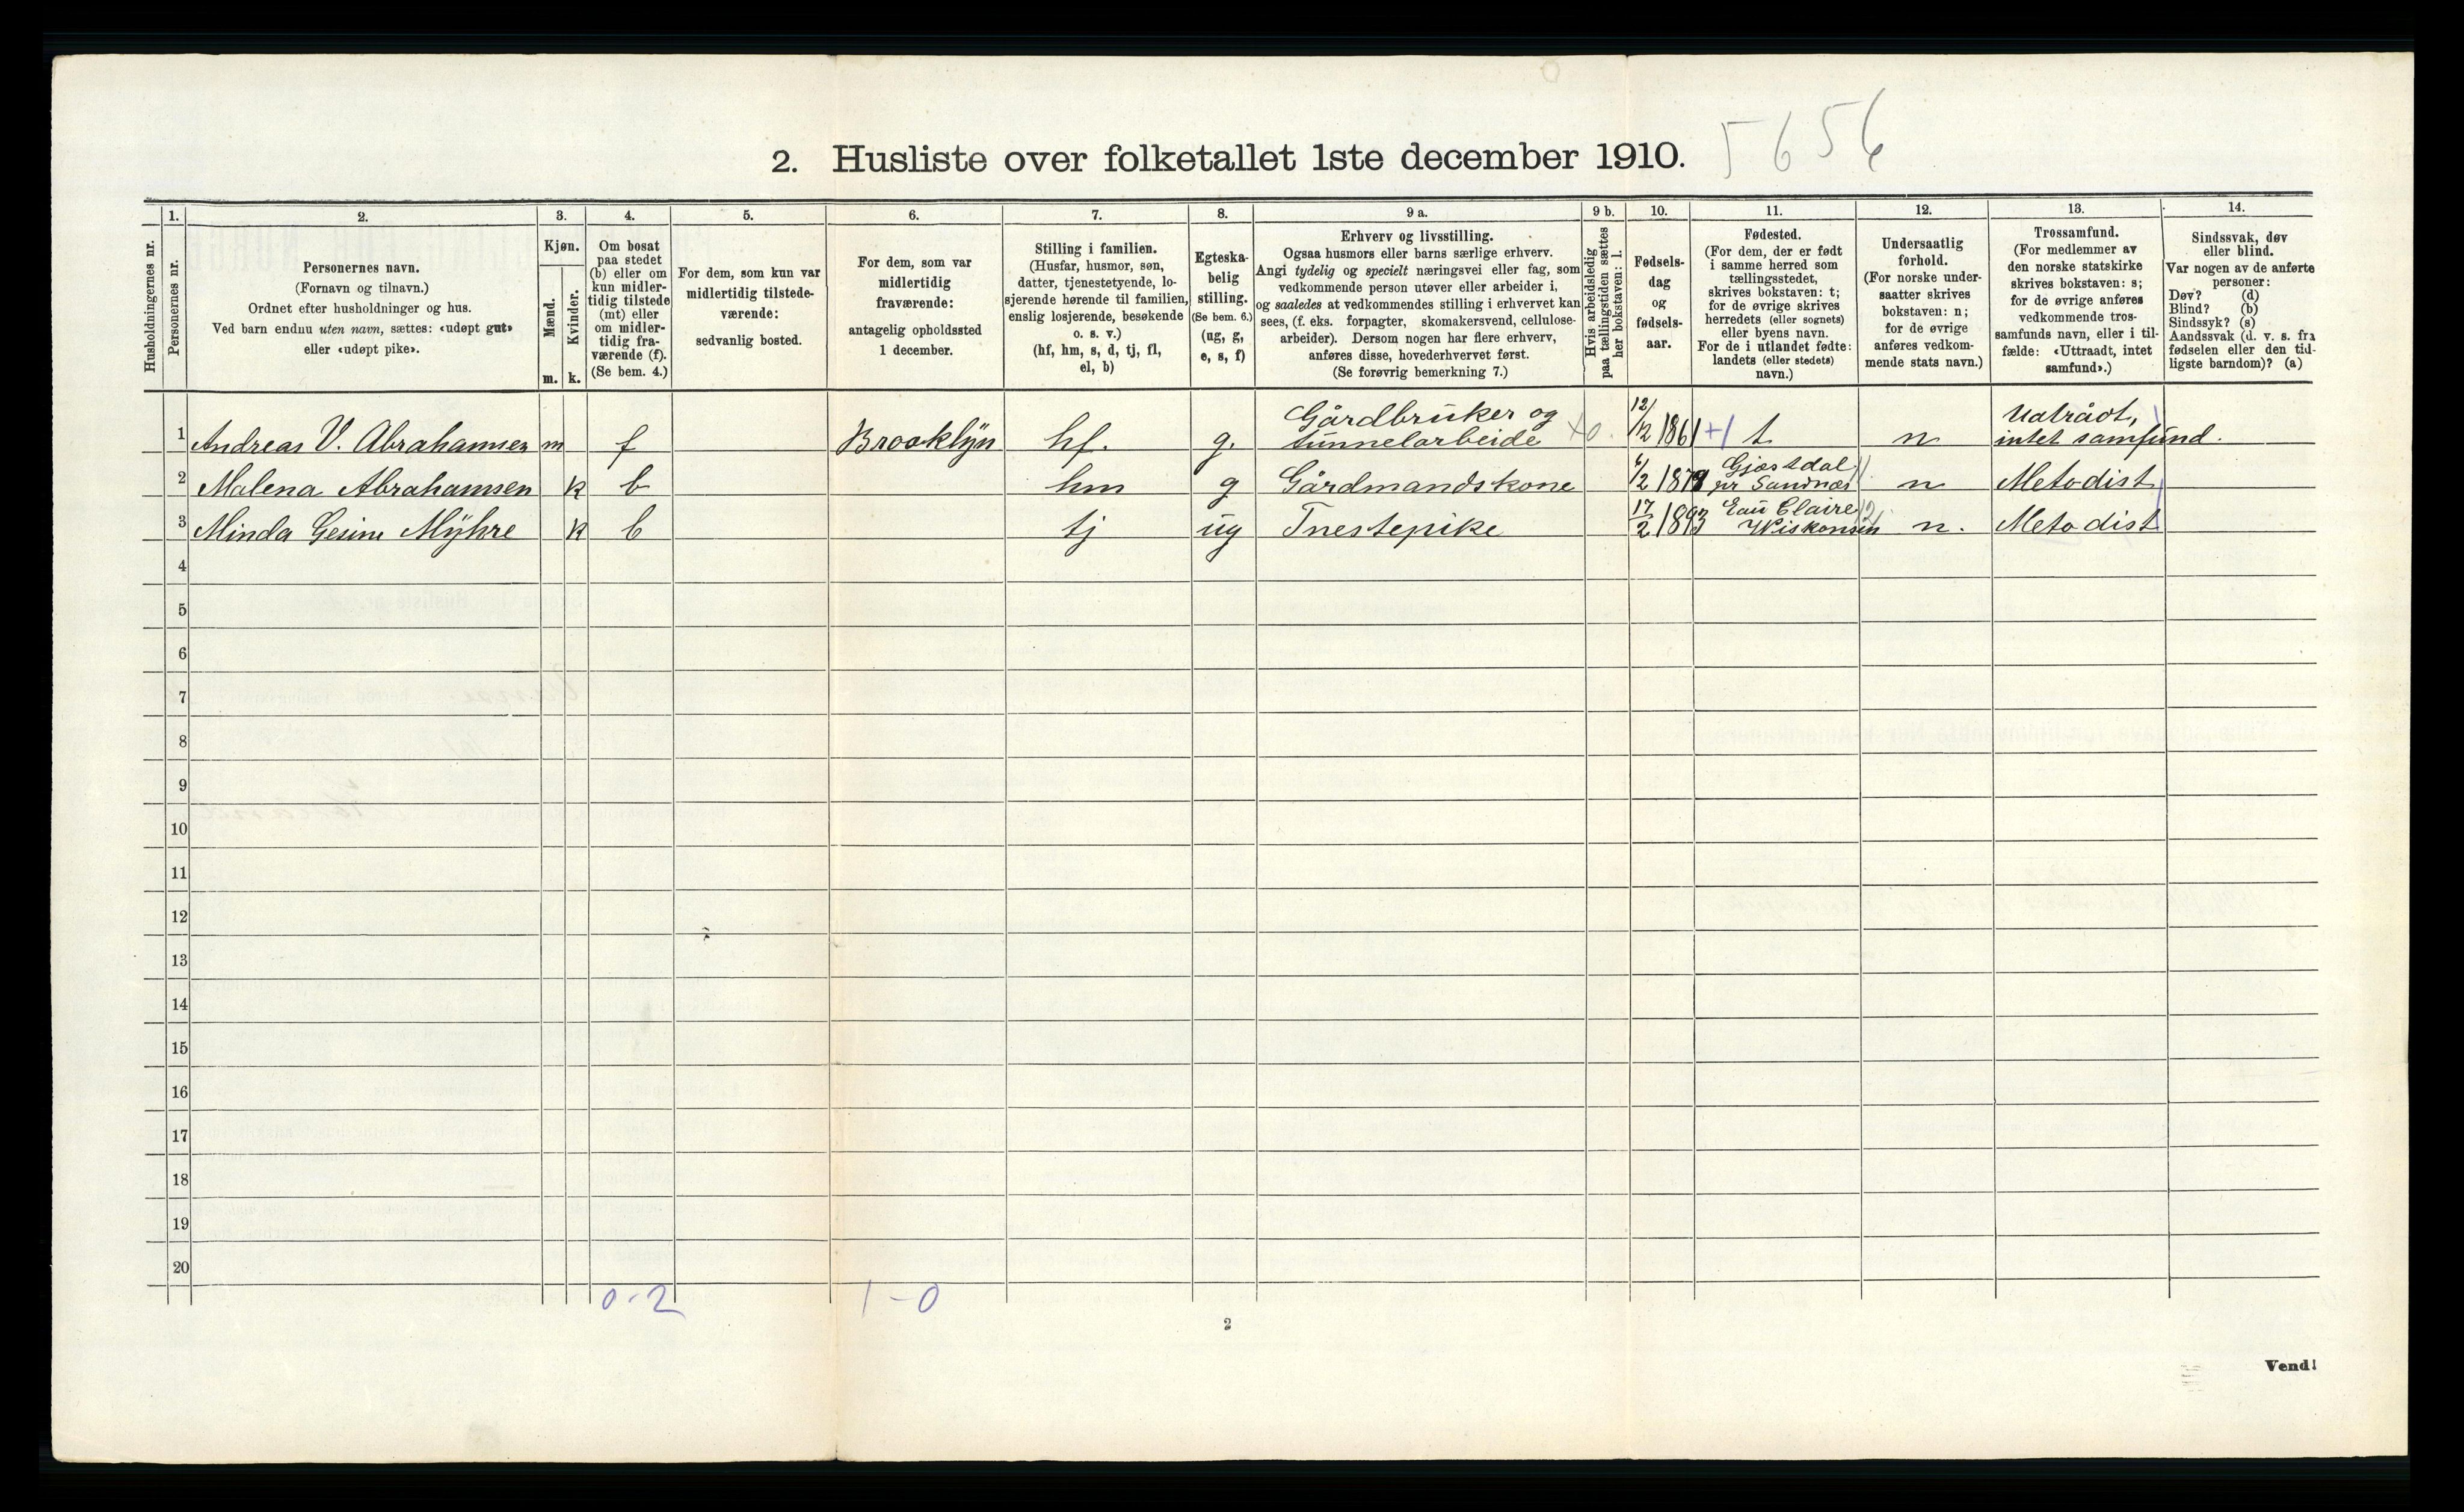 5656
2. Husliste over folketallet 1ste december 1910.
Husholdningernes nr.
1.
Personernes nr.
2.
Personernes navn.
(Fornavn og tilnavn.)
Ordnet efter husholdninger og hus.
Ved barn endnu uten navn, sættes: «udøpt gut»
eller «udøpt pike».
3.
Kjøn.
Mænd.
Kvinder.
m. k.
4.
Om bosat
paa stedet
(b) eller om
kun midler-
tidig tilstede
(mt) eller
om midler-
tidig fra-
værende (f).
(Se bem. 4.)
5.
For dem, som kun var
midlertidig tilstede-
værende:
sedvanlig bosted.
6.
For dem, som var
midlertidig
fraværende:
antagelig opholdssted
1 december.
7.
Stilling i familien.
(Husfar, husmor, søn,
datter, tjenestetyende, lo-
sjerende hørende til familien,
enslig losjerende, besøkende
o. s. v.)
(hf, hm, s, d, tj, fl,
el, b)
8.
Egteska-
belig
stilling.
(Se bem. 6.)
(ug, g,
e, s, f)
9 a.
Erhverv og livsstilling.
Ogsaa husmors eller barns særlige erhverv.
Angi tydelig og specielt næringsvei eller fag, som
vedkommende person utøver eller arbeider i,
og saaledes at vedkommendes stilling i erhvervet kan
sees, (f. eks. forpagter, skomakersvend, cellulose-
arbeider). Dersom nogen har flere erhverv,
anføres disse, hovederhvervet først.
(Se forøvrig bemerkning 7.)
9 b.
Hvis arbeidsledig
paa tællingstiden sættes
her bokstaven: l.
10.
Fødsels-
dag
og
fødsels-
aar.
11.
Fødested.
(For dem, der er født
i samme herred som
tællingsstedet,
skrives bokstaven: t;
for de øvrige skrives
herredets (eller sognets)
eller byens navn.
For de i utlandet fødte:
landets (eller stedets)
navn.)
12.
Undersaatlig
forhold.
(For norske under-
saatter skrives
bokstaven: n;
for de øvrige
anføres vedkom-
mende stats navn.)
13.
Trossamfund.
(For medlemmer av
den norske statskirke
skrives bokstaven: s;
for de øvrige anføres
vedkommende tros-
samfunds navn, eller i til-
fælde: «Uttraadt, intet
samfund».)
14.
Sindssvak, døv
eller blind.
Var nogen av de anførte
personer:
Døv? (d)
Blind? (b)
Sindssyk? (s)
Aandssvak (d. v. s. fra
fødselen eller den tid-
ligste barndom)? (a)
1 Andreas V. Abrahamsen m f Brooklyn hf. g. Gårdbruker og tunnelarbeide 12/12 1861 t n Utatrådt, intet samfund.
2 Malena Abrahamsen k b hm g Gårdmandskone Gjæstdal pr Sandnæs n Metodist
3 Minda Gesine Myhre k b tj ug Tnestepike 17/2 1893 Eau Claire Wiskonsin n. Metodist
4
5
6
7
8
9
10
11
12
13
14
15
16
17
18
19
20
0-2 1-0
2
Vend!